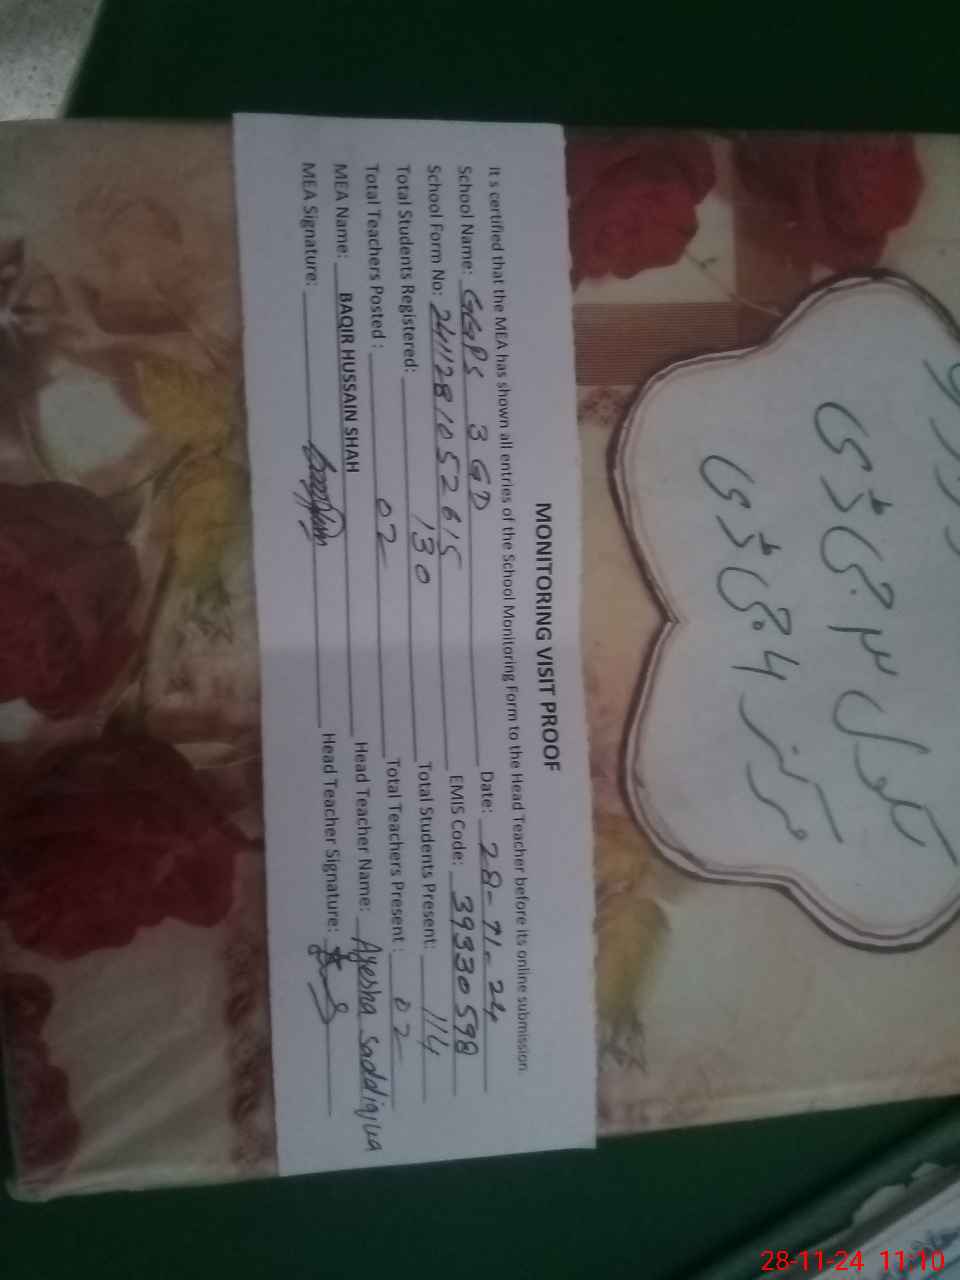 MONITORING VISIT PROOF
It s certified that the MEA has shown all entries of the School Monitoring Form to the Head Teacher before its online submission.
School Name: GGPS 3 GD Date: 28-11-24
School Form No: 2411281052615 EMIS Code: 39330598
Total Students Registered: 130 Total Students Present: 114
Total Teachers Posted : 02 Total Teachers Present : 02
MEA Name: BAQIR HUSSAIN SHAH Head Teacher Name: Ayesha Saddiqua
MEA Signature: Head Teacher Signature:
سکول ۳ جی ڈی
مرکز 4 جی ڈی
28-11-24 11:10